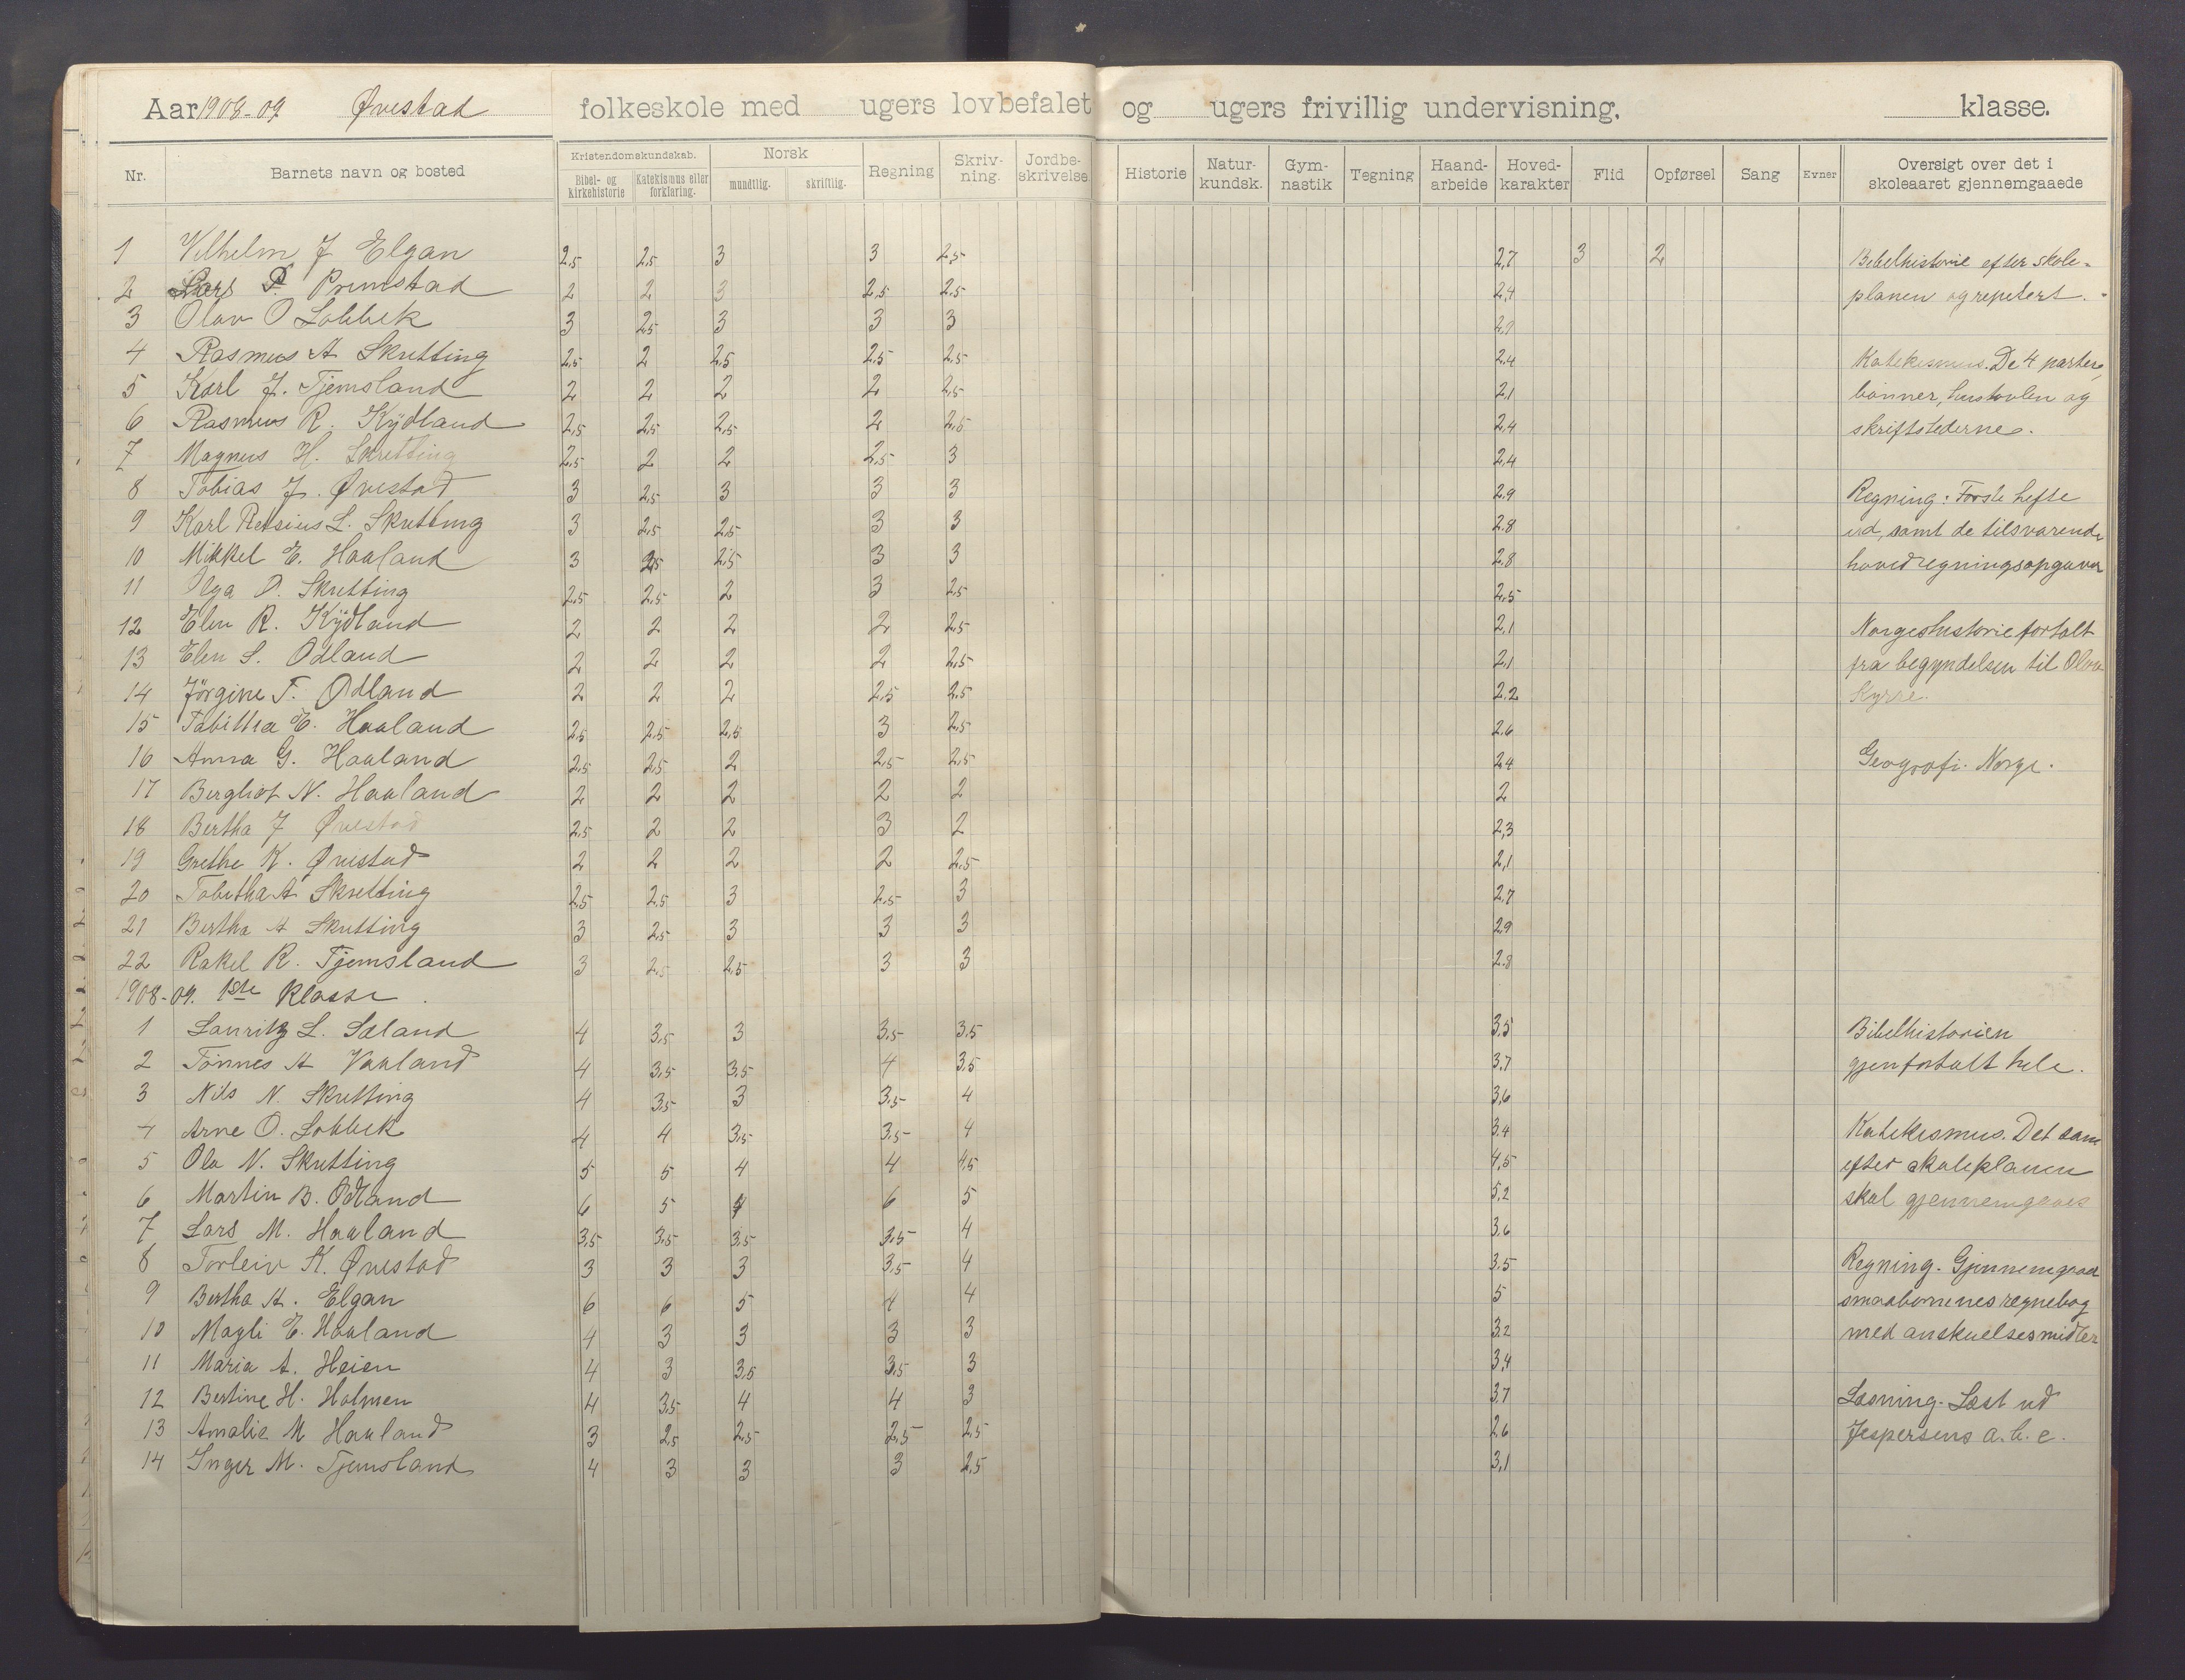 Aar 1908-09 Øvestad folkeskole med ugers lovbefalet og ugers frivillig undervisning. klasse.
Nr. Barnets navn og bosted Kristendomskundskab. Bibel- og kirkehistorie Katekismus eller forklaring. Norsk mundtlig. skriftlig. Regning Skriv-ning. Jordbe-skrivelse. Historie Natur-kundsk. Gym-nastik Tegning Haand-arbeide Hoved-karakter Flid Opførsel Sang Evner Oversigt over det i skoleaaret gjennemgaaede
1 Vilhelm J Elgan 2,5 2,5 3 3 2,5 2,7 3 2 Bibelhistorie efter skole-
2 Lars P. Prumstad 2 2 3 2,5 2,5 2,4 planen og repetert.
3 Olav O Lobbek 3 2,5 3 3 3 2,9
4 Rasmus A Skretting 2,5 2 2,5 2,5 2,5 2,4 Katekismus. De 4 parter,
5 Karl J. Tjemsland 2 2 2 2 2,5 2,1 bønner, hustavlen og
6 Rasmus R. Kydland 2,5 2,5 2,5 2 2,5 2,4 skriftstederne.
7 Magnus H. Skretting 2,5 2 2 2,5 3 2,4
8 Tobias J. Øvestad 3 2,5 3 3 3 2,9 Regning: Første hefte
9 Karl Retsius L. Skretting 3 2,5 2,5 3 3 2,8 ud, samt de tilsvarende
10 Mikkel E. Haaland 3 2,5 2,5 3 3 2,8 hovedregningsopgaver
11 Olga D. Skretting 2,5 2,5 2 3 2,5 2,5
12 Elen R. Kydland 2 2 2 2 2,5 2,1 Norgeshistorie fortalt
13 Elen S. Odland 2 2 2 2 2,5 2,1 fra begyndelsen til Olav
14 Jörgine T. Odland 2 2 2 2,5 2,5 2,2 Kyrre.
15 Tabitha E. Haaland 2,5 2,5 2,5 3 2,5 2,6
16 Anna G. Haaland 2,5 2,5 2 2,5 2,5 2,4 Geografi. Norge.
17 Bergliot N. Haaland 2 2 2 2 2 2
18 Bertha J Øvestad 2,5 2 2 3 2 2,3
19 Grethe K. Øvestad 2 2 2 2 2,5 2,1
20 Tabitha A Skretting 2,5 2,5 3 2,5 3 2,7
21 Bertha A Skretting 3 2,5 3 3 3 2,9
22 Rakel R. Tjemsland 3 2,5 2,5 3 3 2,8
1908-09. 1ste klasse.
1 Lauritz L. Sæland 4 3,5 3 3,5 3,5 3,5 Bibelhistorien
2 Tönnes A Vaaland 4 3,5 3,5 4 3,5 3,7 gjenfortalt hele.
3 Nils N. Skretting 4 3,5 3 3,5 4 3,6
4 Arne O. Lobbek 4 4 3,5 3,5 4 3,4 Katekismus. Det som
5 Ola N. Skretting 5 5 4 4 4,5 4,5 efter skoleplanen
6 Martin B. Odland 6 5 4 6 5 5,2 skal gjennemgaaes
7 Lars M. Haaland 3,5 3,5 3,5 3,5 4 3,6
8 Torleiv K. Øvestad 3 3 3 3,5 4 3,5 Regning. Gjennemgaaet
9 Bertha A. Elgan 6 6 5 4 4 5 smaabørnenes regnebog
10 Magli E. Haaland 4 3 3 3 3 3,2 med anskuelsesmidler
11 Maria A. Heien 4 3 3,5 3,5 3 3,4
12 Bertine H. Holmen 4 3,5 4 4 3 3,7 Læsning. Læst ud
13 Amalie M Haaland 3 2,5 2,5 2,5 2,5 2,6 Jespersens a.b.c.
14 Inger M. Tjemsland 4 3 3 3 2,5 3,1